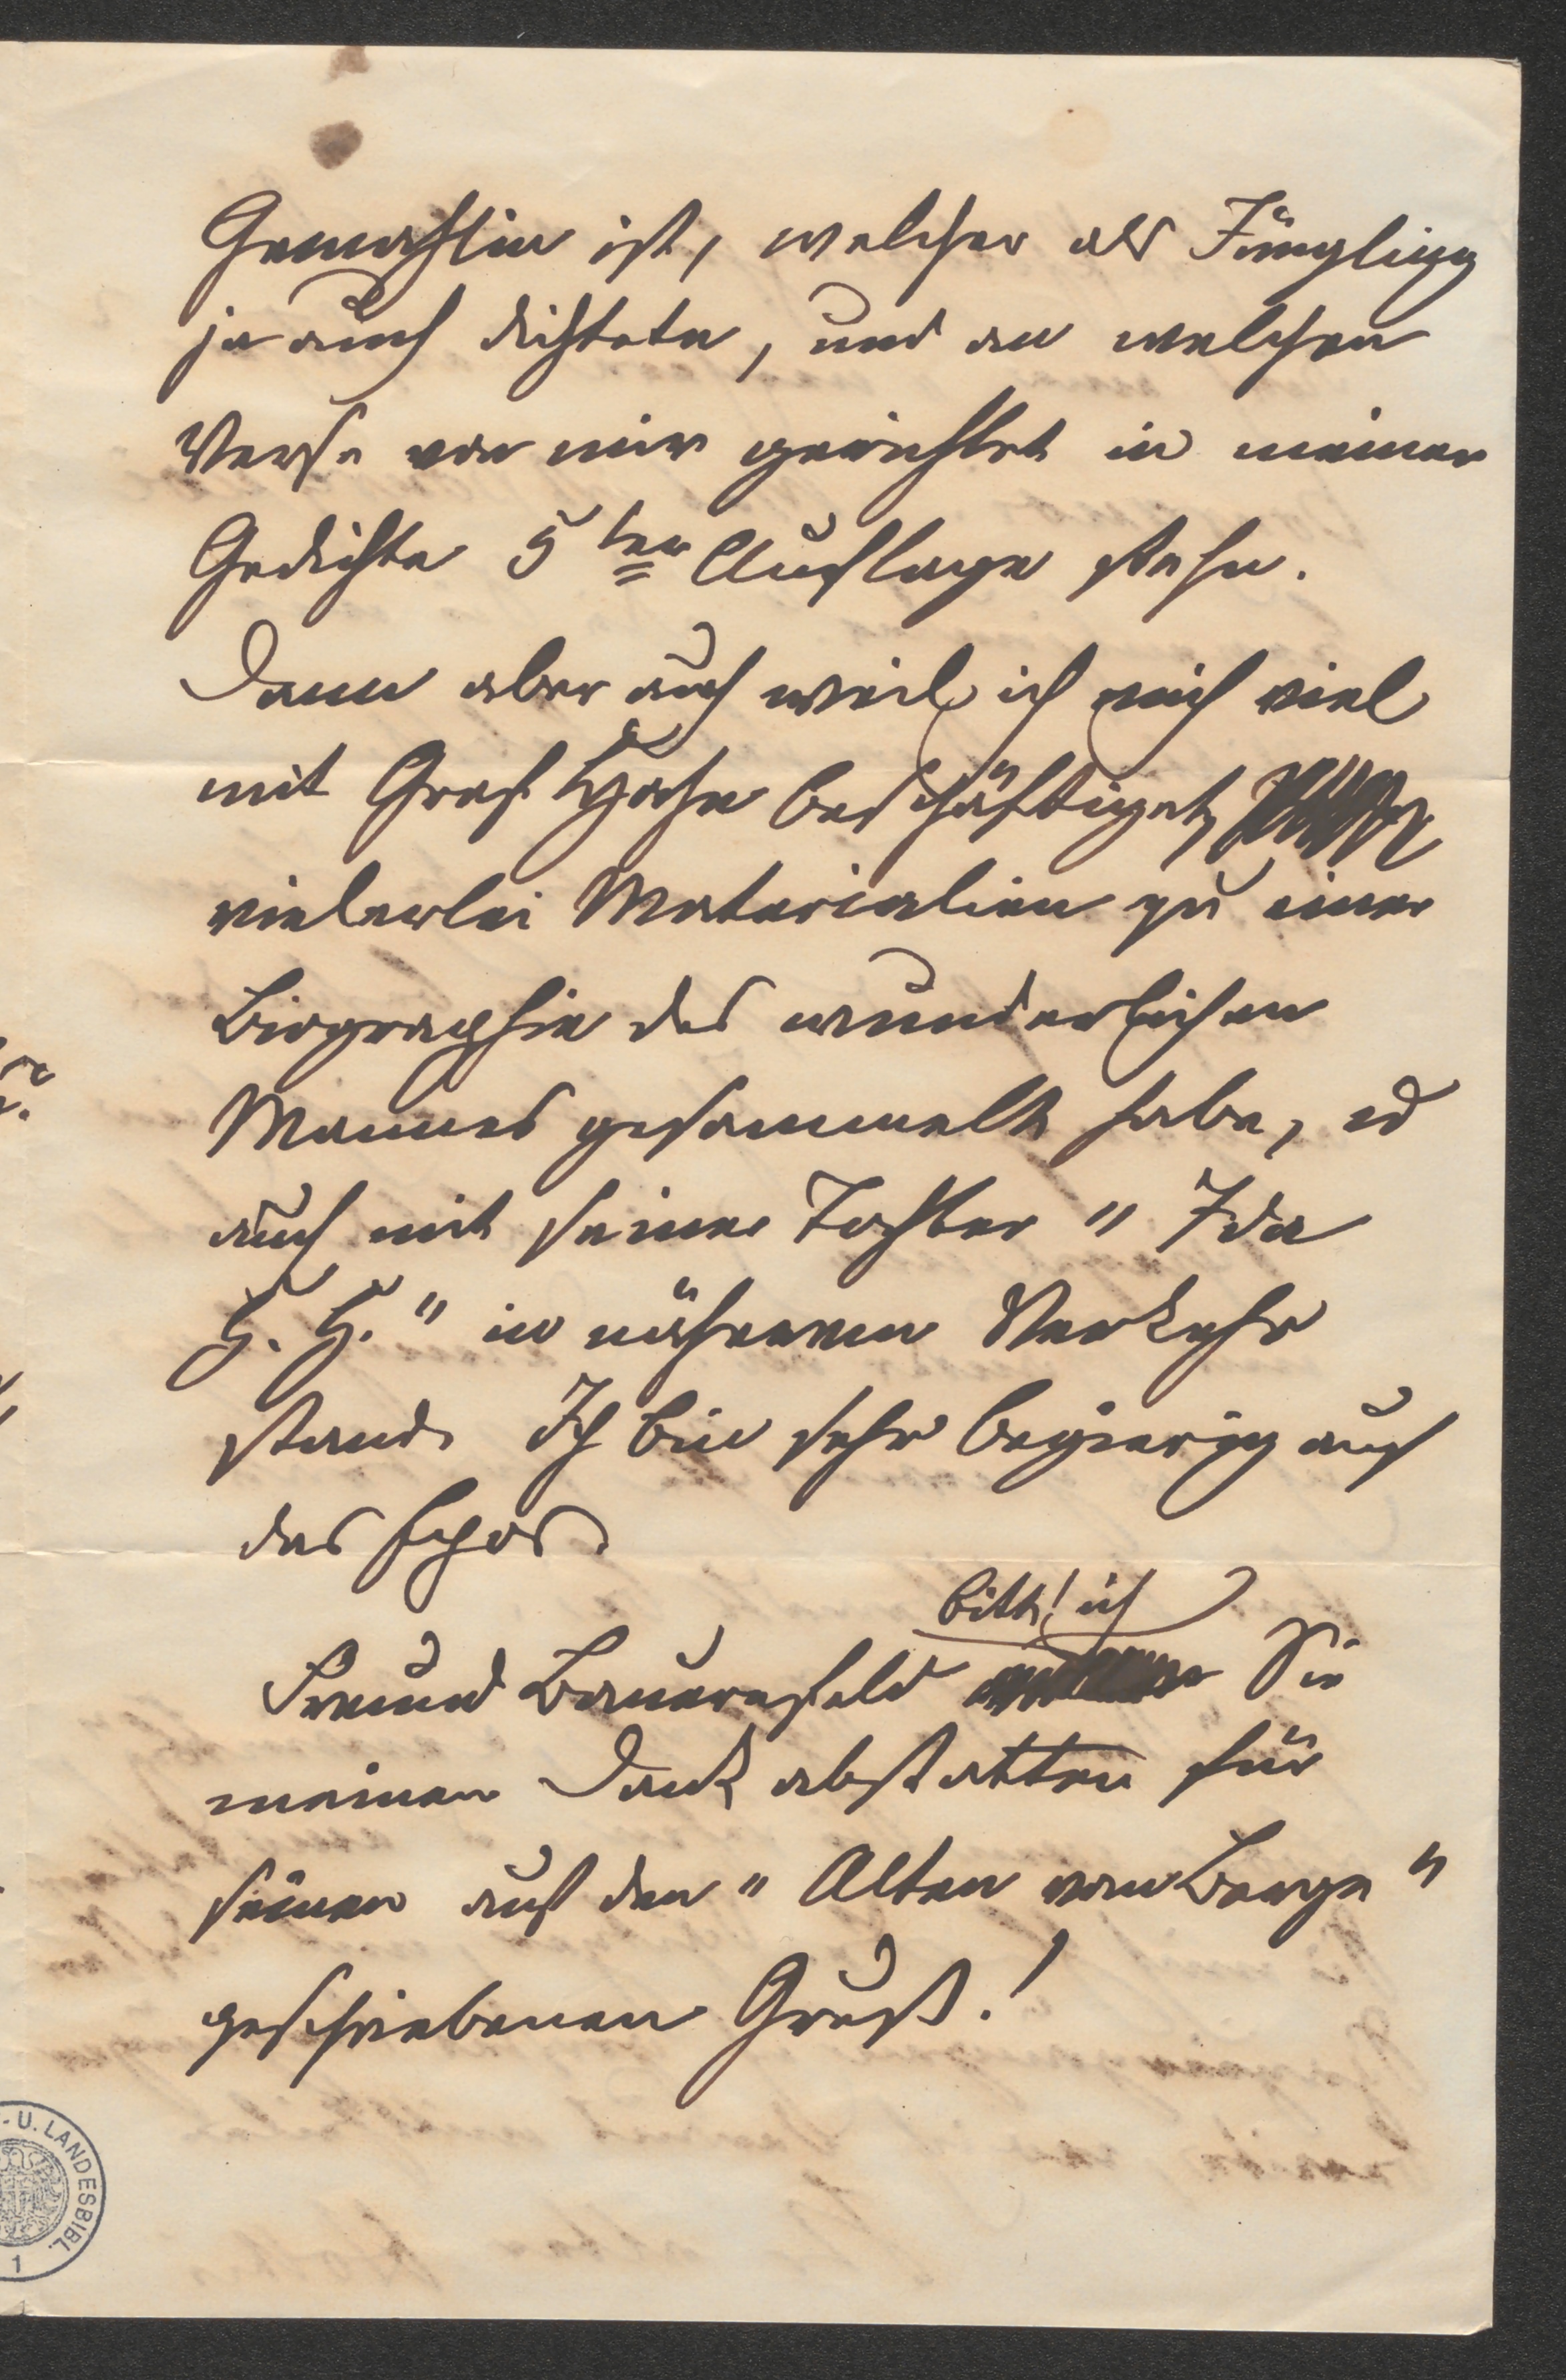 Gemahlin ist, welcher als Jüngling
ja auch dichtete, und an welchen
Verse von mir gerichtet in meiner
Gedichte 5ter Auflage stehn.
Dann aber auch weil ich mich viel
mit Graf Hahn beschäftiget,
vielerlei Materialien zu einer
Biographie des wunderlichen
Mannes gesammelt habe, es
auch mit seiner Tochter "Ida
H. H." in näherem Verkehr
stand. Ich bin sehr begierig auf
das Epos.
bitte! ich
Freund Bauernfeld Sie
meinen Dank abstatten für
seinen auf den "Alten vom Berge"
geschriebenen Gruß.!
- U. LANDESBIBL.
1